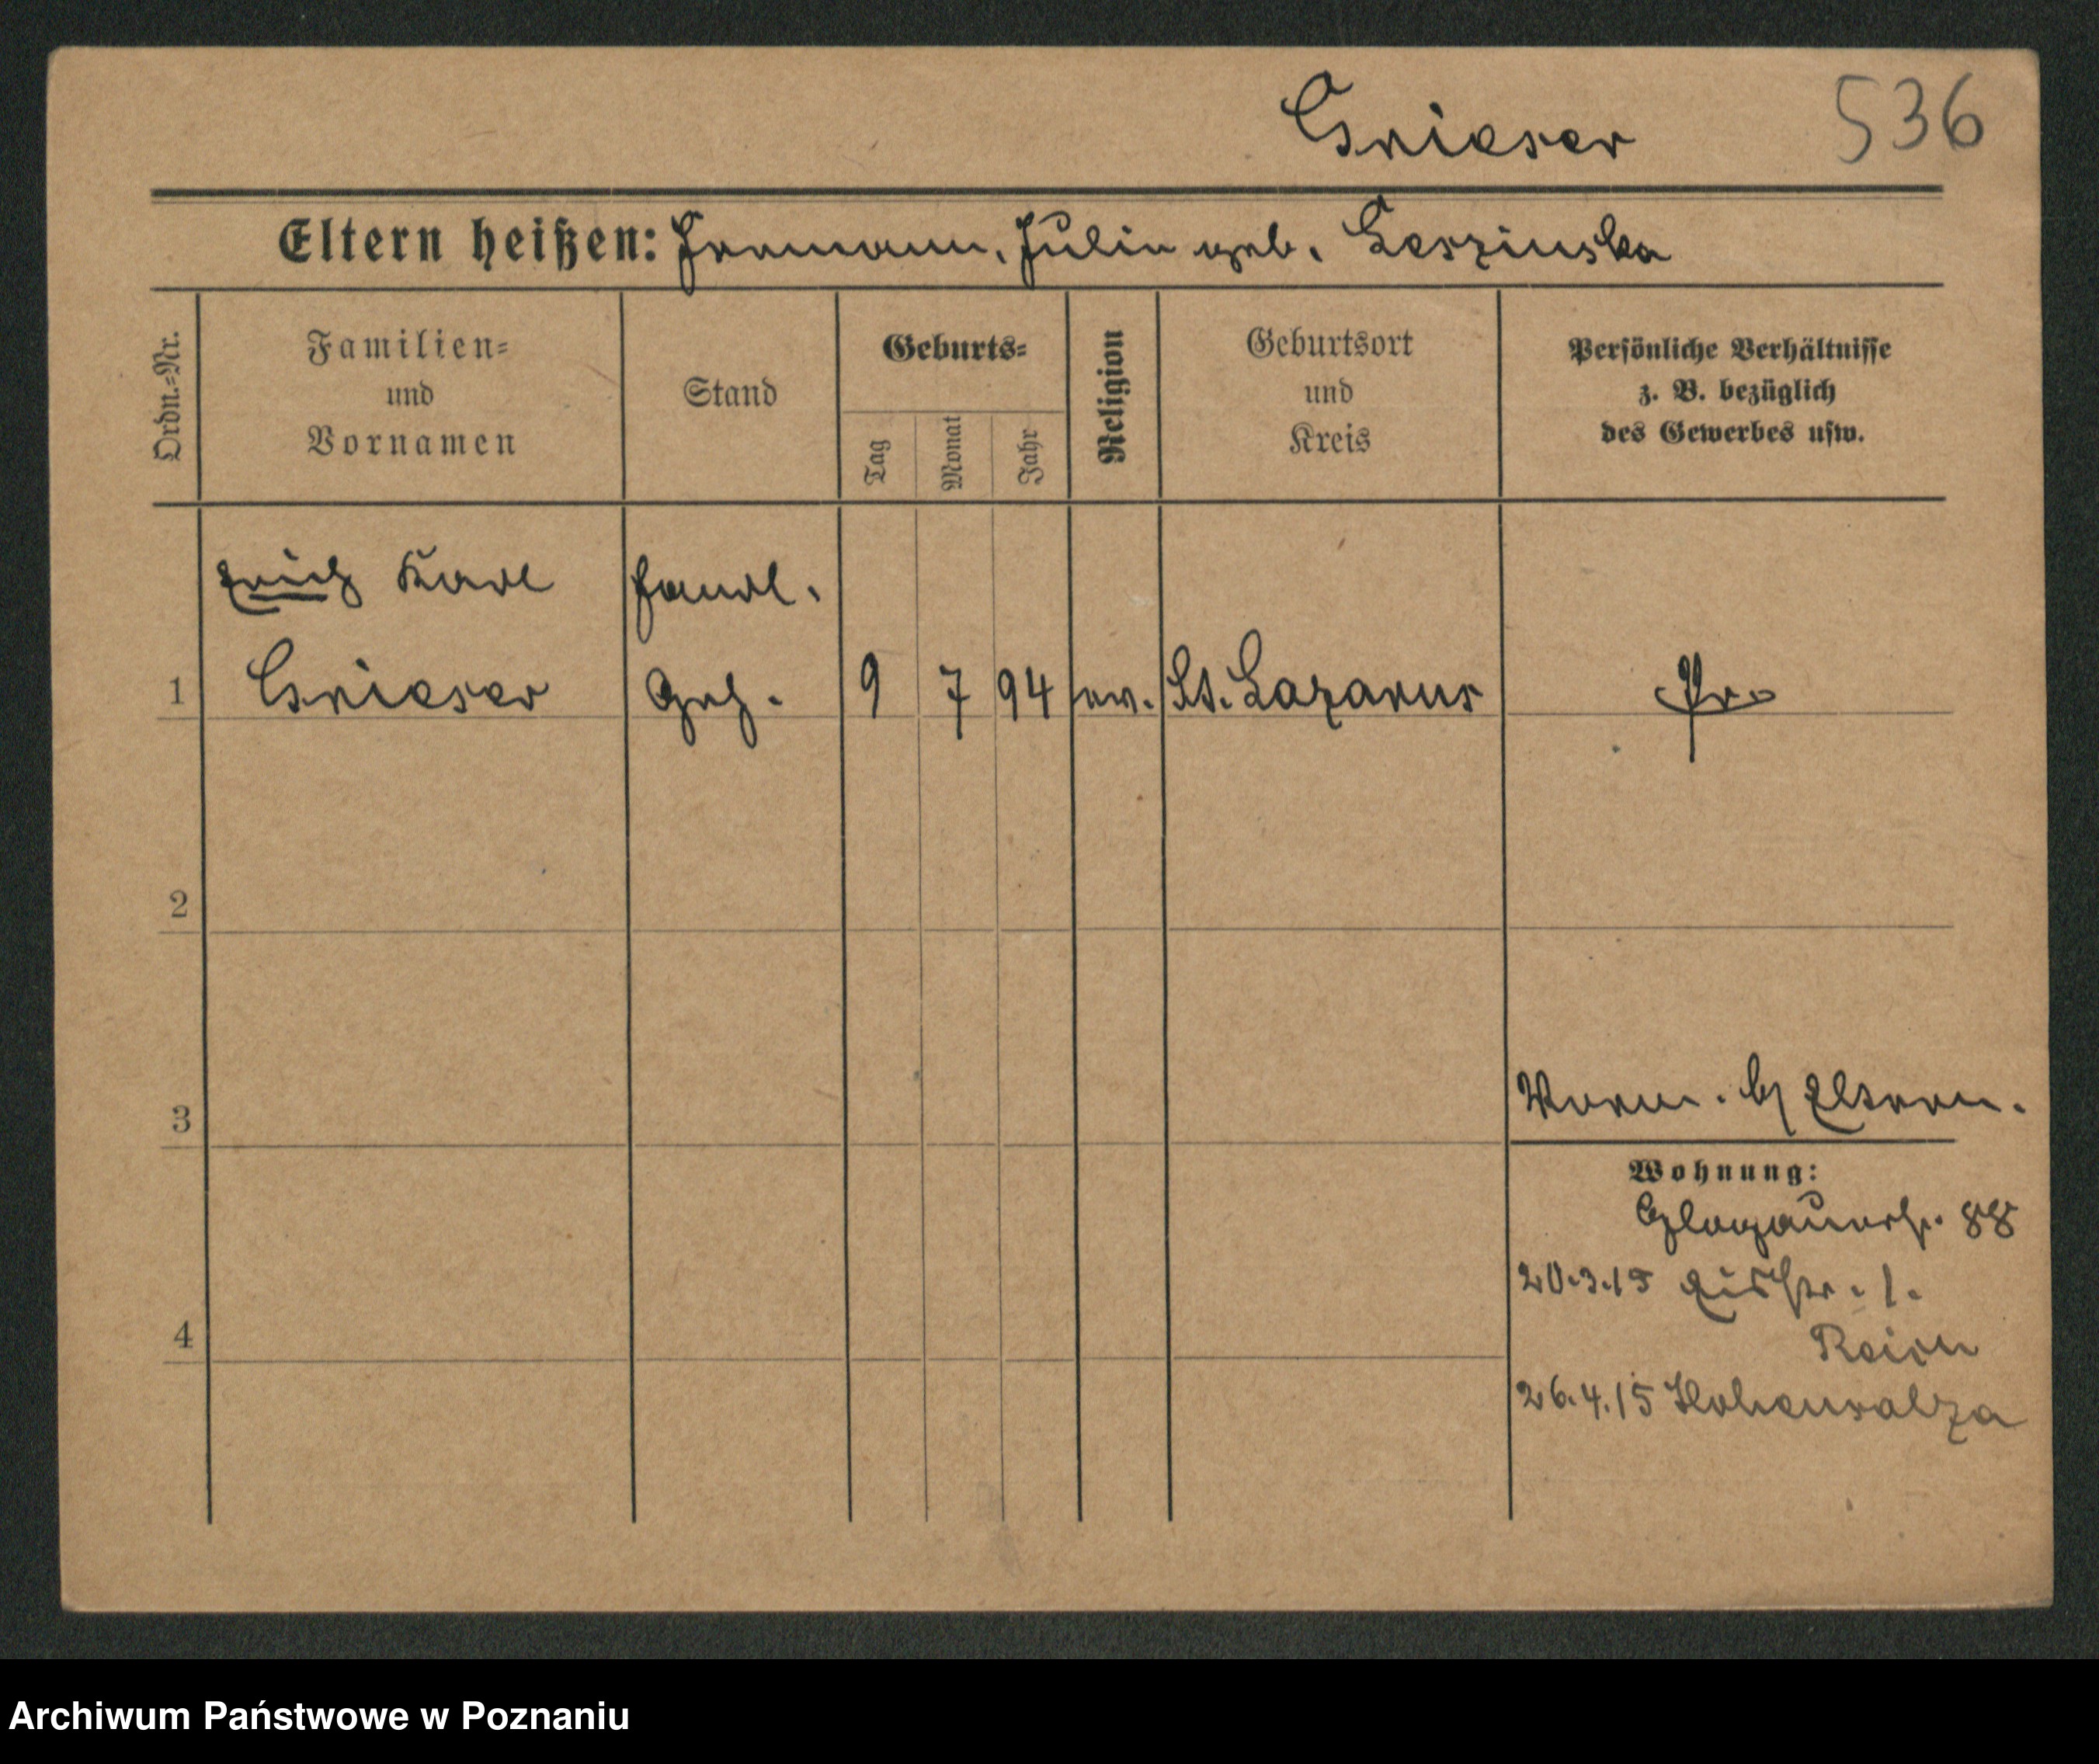 Gnieser 536
Eltern heißen: Hermann, Julie geb. Leszinska
Ordn.=Nr.
Familien=
und
Vornamen
Stand
Geburts=
Tag
Monat
Jahr
Religion
Geburtsort
und
Kreis
Persönliche Verhältnisse
z. B. bezüglich
des Gewerbes usw.
Erich Karl Handl.
1 Gnieser Geh. 9 7 94 ev. St. Lazarus Pr
2
3
b/ Eltern.
Wohnung:
Glogauerstr. 88
20.3.15
4
26.4.15 Hohensalza
Archiwum Państwowe w Poznaniu